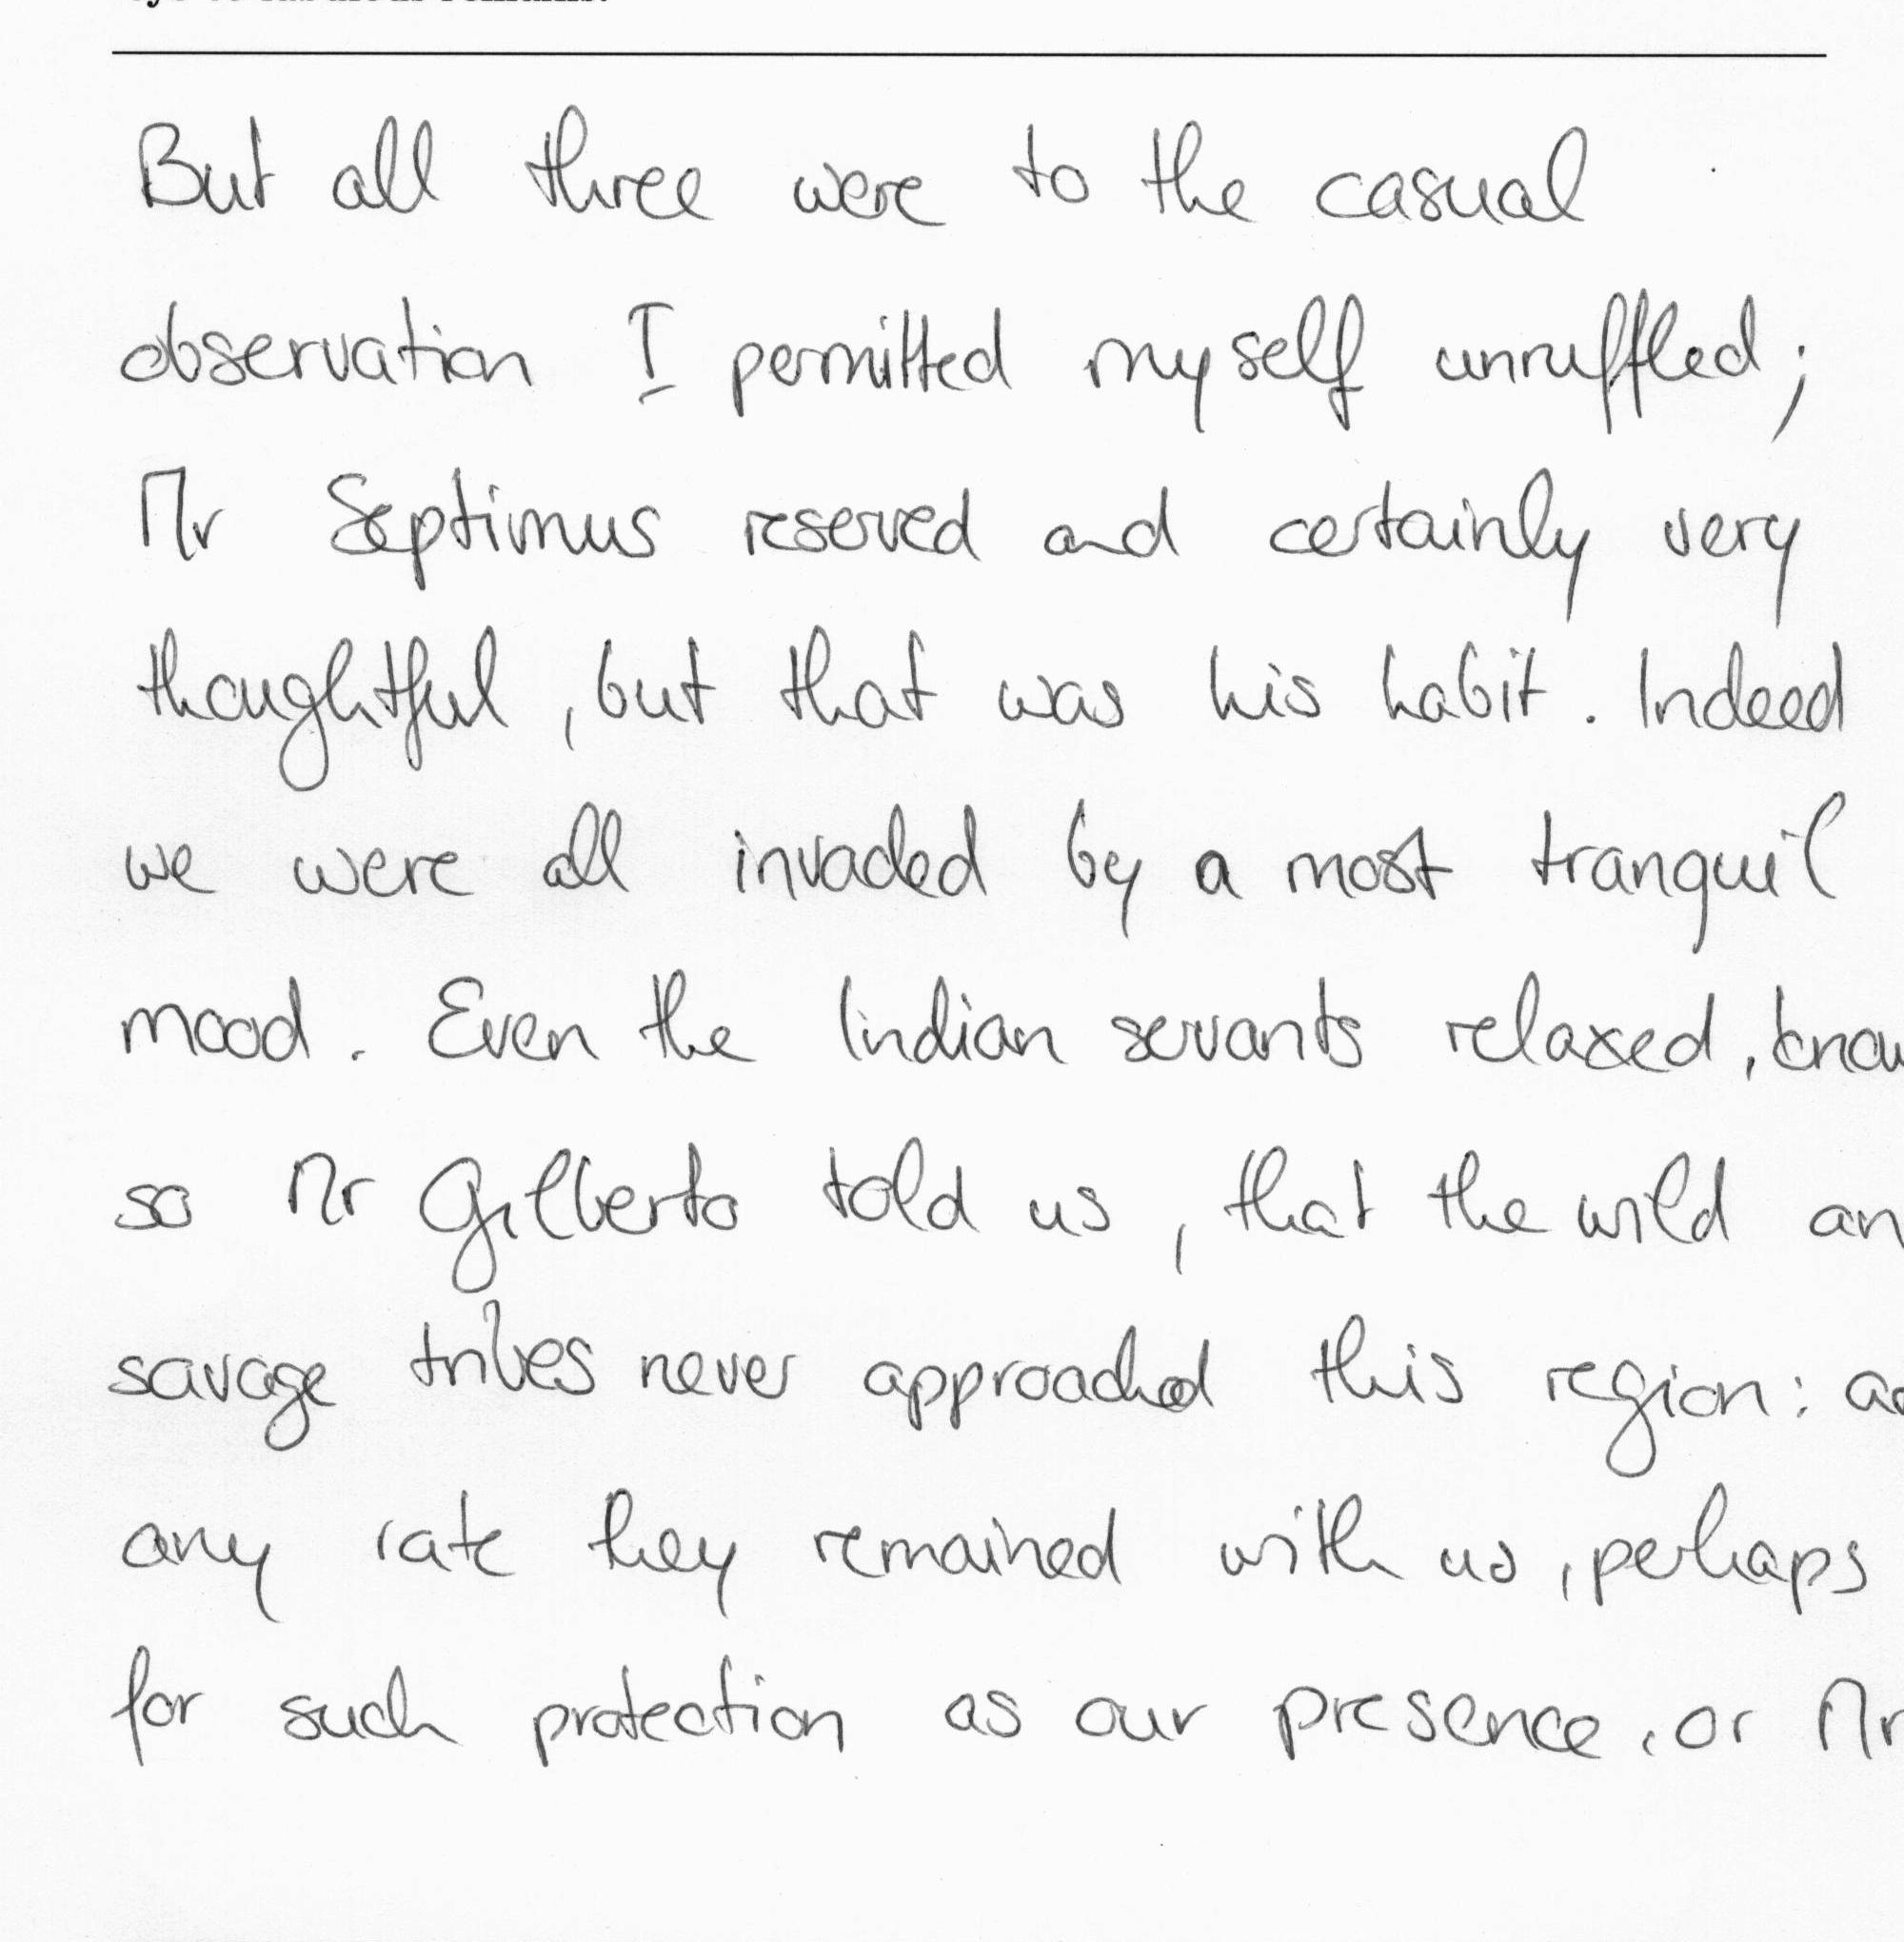 But all three were to the casual
observation I permitted myself unruffled;
Mr Septimus reserved and certainly very
thoughtful, but that was his habit. Indeed
we were all invaded by a most tranquil
mood. Even the Indian servants relaxed,
so Mr Gilberto told us, that the wild
savage tribes never approached this region:
any rate they remained with us, perhaps
for such protection as our presence, or Mr